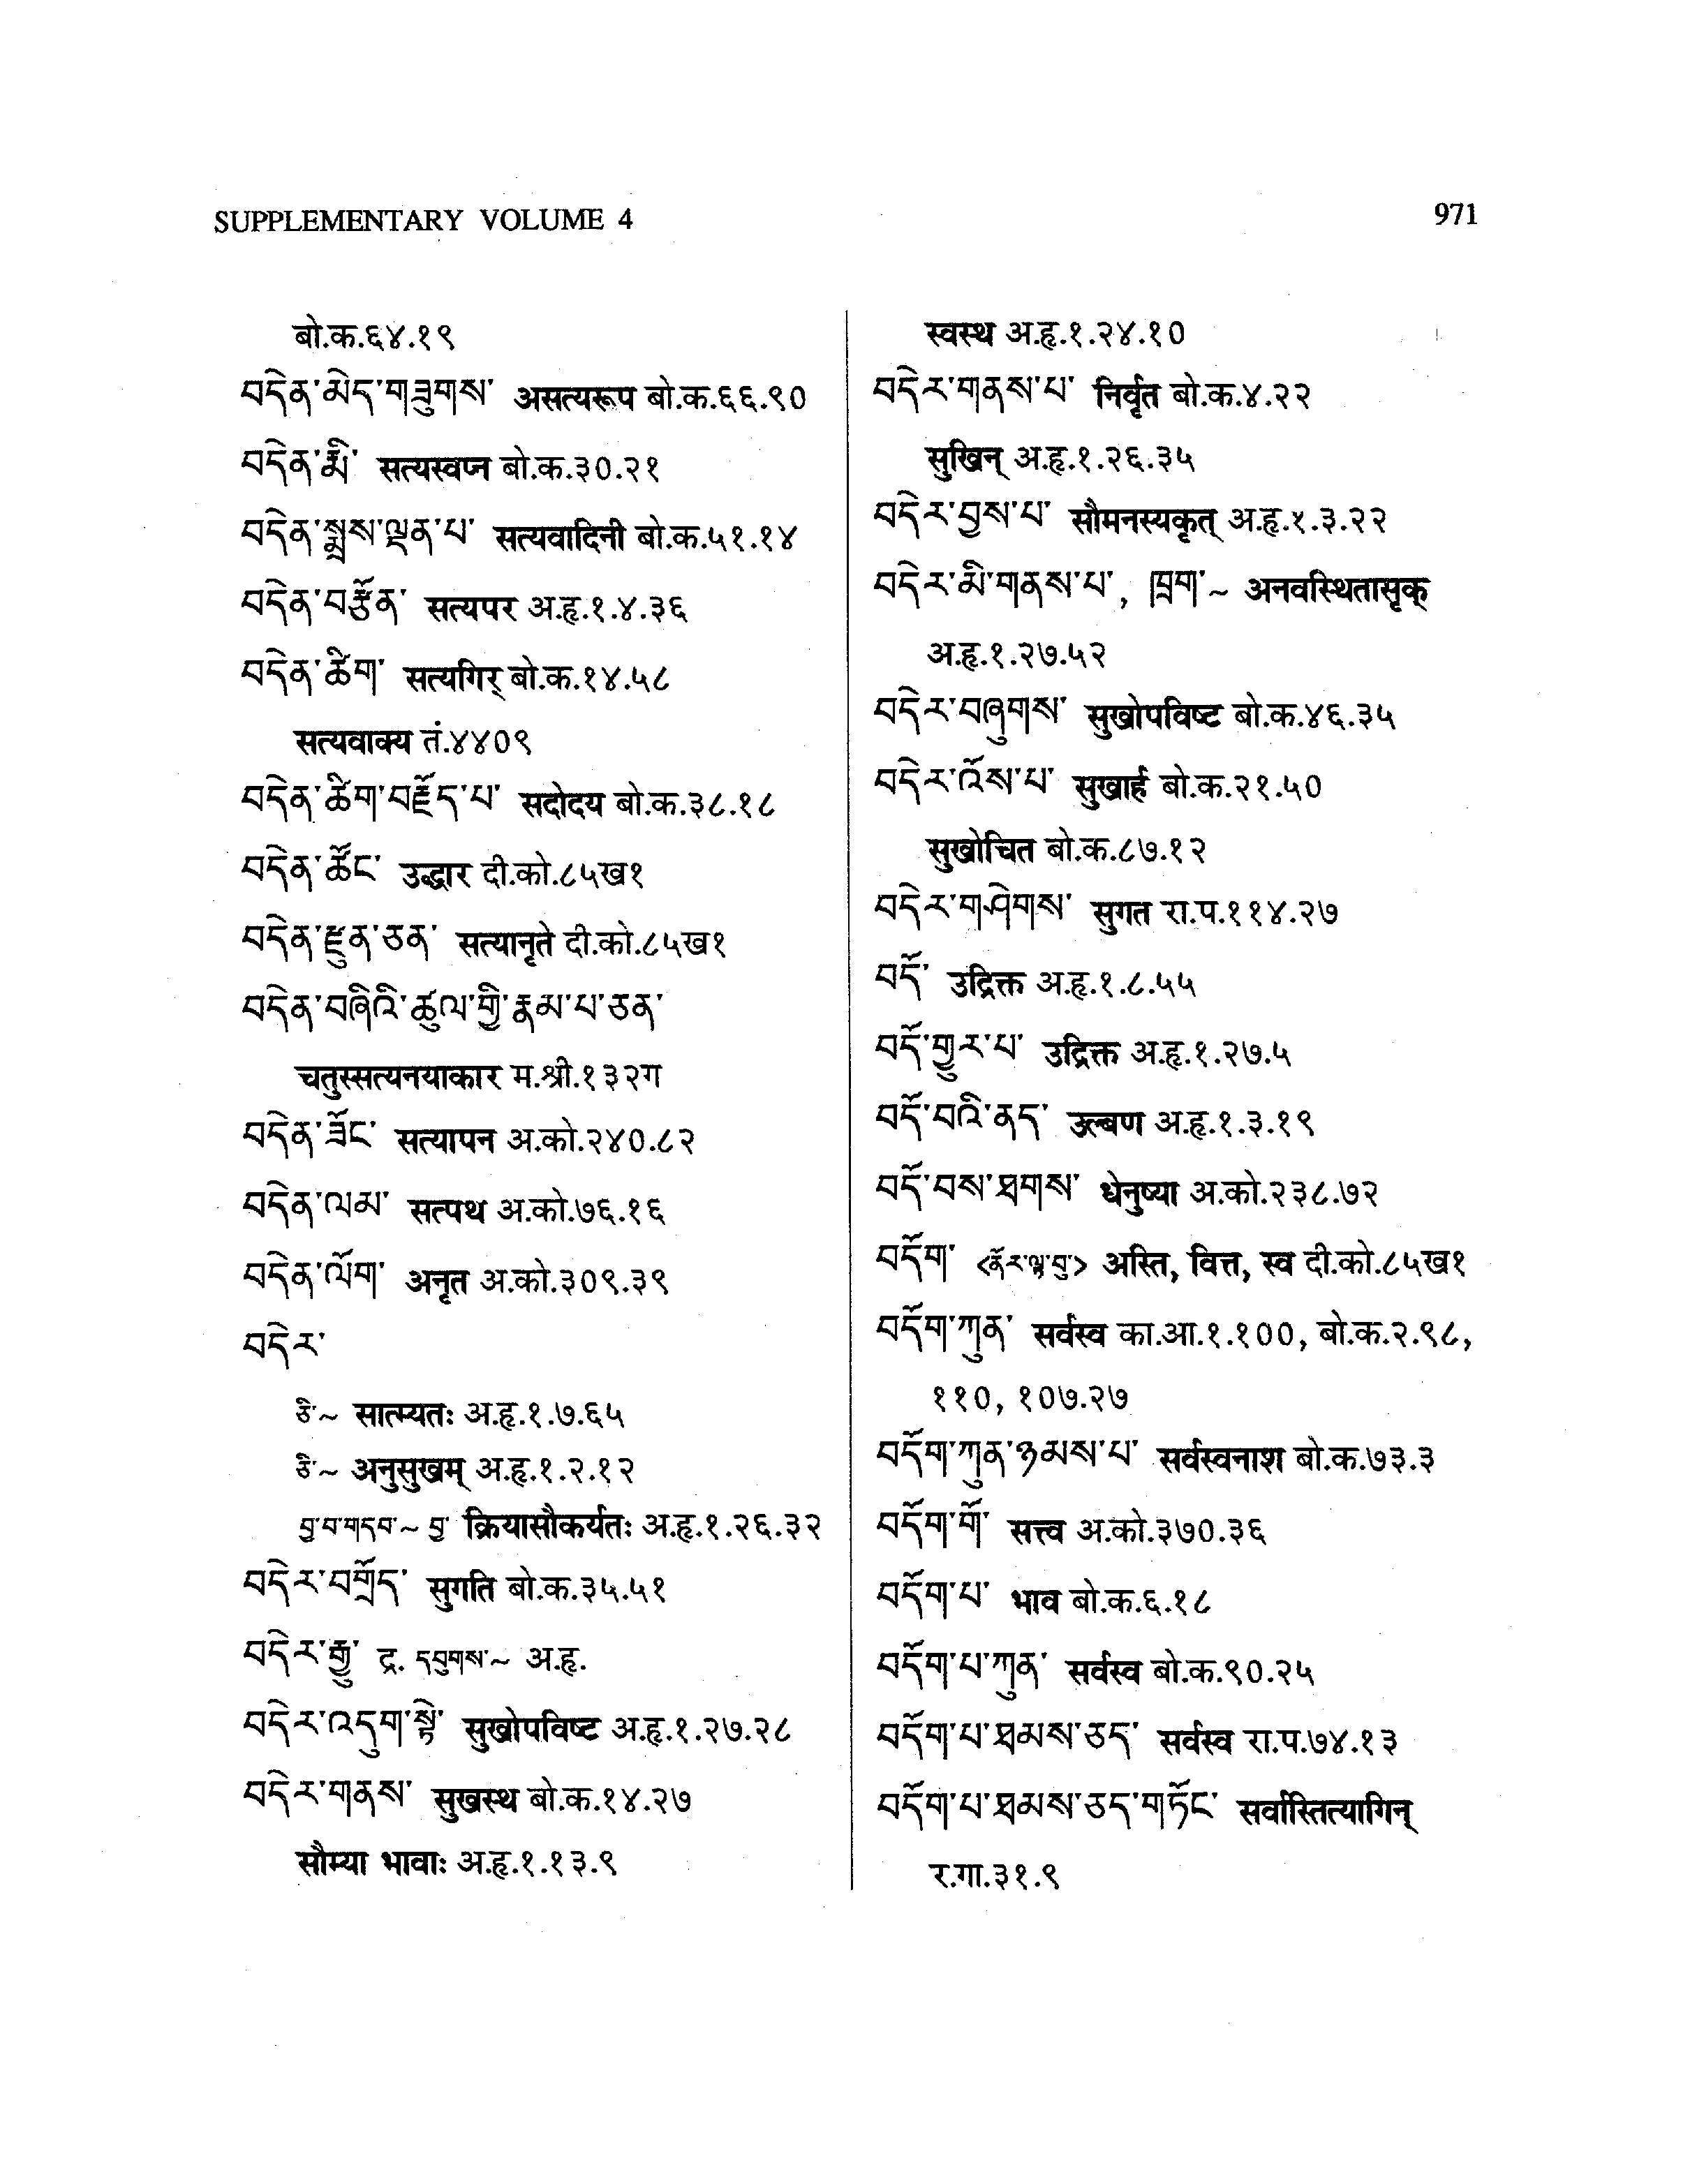 SUPPLEMENTARY VOLUME 4 971
बो.क.६४.१९
བདེན་མེད་གཟུགས་ असत्यरूप बो.क.६६.९०
བདེན་རྨི་ सत्यस्वप्न बो.क.३०.२१
བདེན་སྨྲས་ལྡན་པ་ सत्यवादिनी बो.क.५१.१४
བདེན་བརྩོན་ सत्यपर अ.हृ.१.४.३६
བདེན་ཚིག་ सत्यगिर् बो.क.१४.५८
सत्यवाक्य तं.४४०९
བདེན་ཚིག་བརྗོད་པ་ सदोदय बो.क.३८.१८
བདེན་ཚོང་ उद्धार दी.को.८५ख१
བདེན་རྫུན་ཅན་ सत्यानृते दी.को.८५ख१
བདེན་བཞིའི་ཚུལ་གྱི་རྣམ་པ་ཅན་
चतुस्सत्यनयाकार म.श्री.१३२ग
བདེན་ཟོང་ सत्यापन अ.को.२४०.८२
བདེན་ལམ་ सत्पथ अ.को.७६.१६
བདེན་ལོག་ अनृत अ.को.३०९.३९
བདེར་
ཅི་~ सात्म्यतः अ.हृ.१.७.६५
ཅི་~ अनुसुखम् अ.हृ.१.२.१२
བྱ་བ་གདབ་~ བྱ་ क्रियासौकर्यतः अ.हृ.१.२६.३२
བདེར་བགྲོད་ सुगति बो.क.३५.५१
བདེར་རྒྱུ་ द्र. དབུགས་~ अ.हृ.
བདེར་འདུག་སྟེ་ सुखोपविष्ट अ.हृ.१.२७.२८
བདེར་གནས་ सुखस्थ बो.क.१४.२७
सौम्या भावाः अ.हृ.१.१३.९
स्वस्थ अ.हृ.१.२४.१०
བདེར་གནས་པ་ निर्वृत बो.क.४.२२
सुखिन् अ.हृ.१.२६.३५
བདེར་བྱས་པ་ सौमनस्यकृत् अ.हृ.१.३.२२
བདེར་མི་གནས་པ་, ཁྲག་~ अनवस्थितासृक्
अ.हृ.१.२७.५२
བདེར་བཞུགས་ सुखोपविष्ट बो.क.४६.३५
བདེར་འོས་པ་ सुखार्ह बो.क.२१.५०
सुखोचित बो.क.८७.१२
བདེར་གཤེགས་ सुगत रा.प.११४.२७
བདོ་ उद्रिक्त अ.हृ.१.८.५५
བདོ་གྱུར་པ་ उद्रिक्त अ.हृ.१.२७.५
བདོ་བའི་ནད་ उल्बण अ.हृ.१.३.१९
བདོ་བས་ཐགས་ धेनुष्या अ.को.२३८.७२
བདོག་ <ནོར་ལྟ་བུ་> अस्ति, वित्त, स्व दी.को.८५ख१
བདོག་ཀུན་ सर्वस्व का.आ.१.१००, बो.क.२.९८,
११०, १०७.२७
བདོག་ཀུན་ཉམས་པ་ सर्वस्वनाश बो.क.७३.३
བདོག་གོ་ सत्त्व अ.को.३७०.३६
བདོག་པ་ भाव बो.क.६.१८
བདོག་པ་ཀུན་ सर्वस्व बो.क.९०.२५
བདོག་པ་ཐམས་ཅད་ सर्वस्व रा.प.७४.१३
བདོག་པ་ཐམས་ཅད་གཏོང་ सर्वास्तित्यागिन्
र.गा.३१.९